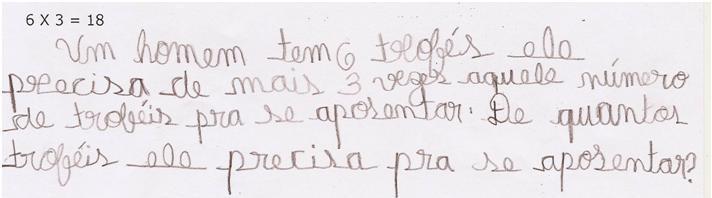 6 X 3 = 18
Um homem tem 6 trofés ele
precisa de mais 3 vezes aquele número
de troféis pra se aposentar. De quantos
troféis ele precisa pra se aposentar?